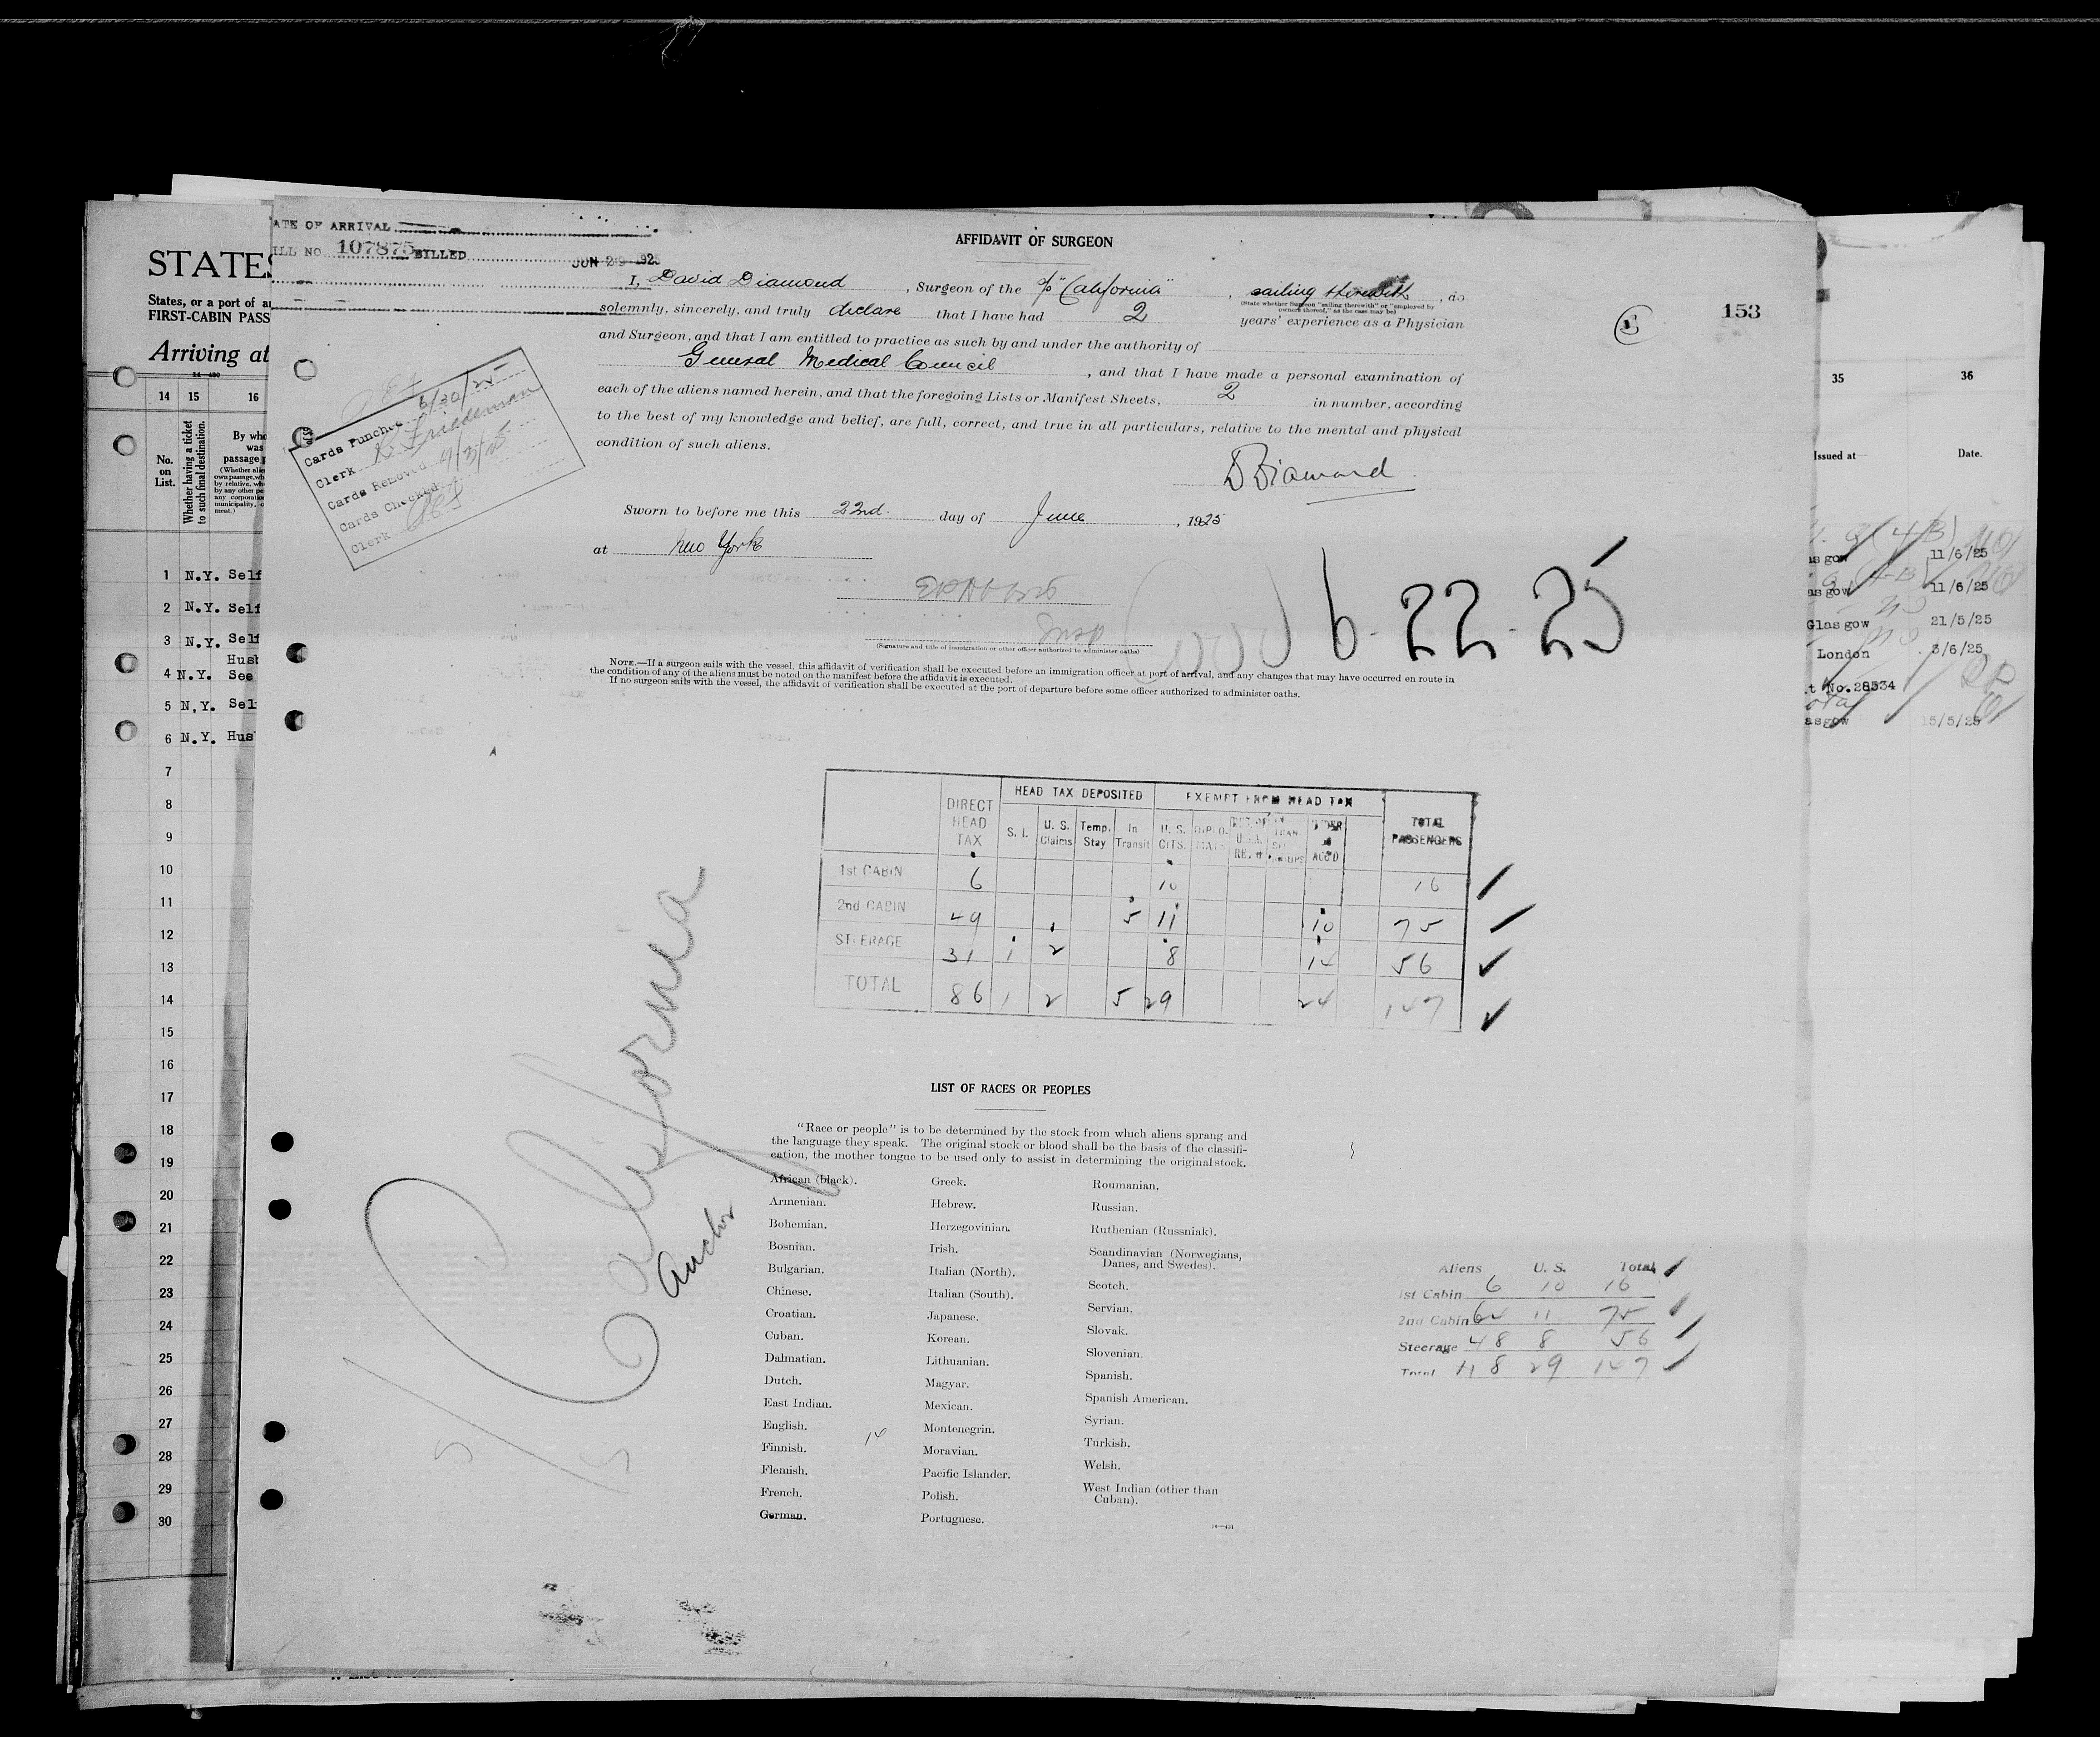 STATES
States, or a port of a
FIRST-CABIN PASS
Arriving at
14 15 16
No. on List.
Whether having a ticket to such final destination.
By who
was
passage p
1 N.Y. Self
2 N.Y. Self
3 N.Y. Self
Husb
4 N.Y. See
5 N.Y. Sel
6 N.Y. Hus
7
8
9
10
11
12
13
14
15
16
17
18
19
20
21
22
23
24
25
26
27
28
29
30
ATE OF ARRIVAL
ILL NO. 107875 BILLED
Cards Punched 6/30/25
Clerk K Friedeman
Cards Removed
Cards Checked
Clerk
153
AFFIDAVIT OF SURGEON
I, David Diamond, Surgeon of the S/S "California", sailing therewith, do
(State whether Surgeon "sailing therewith" or "employed by owners thereof," as the case may be)
solemnly, sincerely, and truly declare that I have had 2 years' experience as a Physician
and Surgeon, and that I am entitled to practice as such by and under the authority of
General Medical Council, and that I have made a personal examination of
each of the aliens named herein, and that the foregoing Lists or Manifest Sheets, 2 in number, according
to the best of my knowledge and belief, are full, correct, and true in all particulars, relative to the mental and physical
condition of such aliens.
D Diamond
Sworn to before me this 22nd. day of June, 1925
at New York
6-22-25
Insp
(Signature and title of immigration or other officer authorized to administer oaths)
NOTE.—If a surgeon sails with the vessel, this affidavit of verification shall be executed before an immigration officer at port of arrival, and any changes that may have occurred en route in
the condition of any of the aliens must be noted on the manifest before the affidavit is executed.
If no surgeon sails with the vessel, the affidavit of verification shall be executed at the port of departure before some officer authorized to administer oaths.
HEAD TAX DEPOSITED EXEMPT FROM HEAD TAX
DIRECT HEAD TAX S. I. U. S. Claims Temp. Stay In Transit U. S. CITS. TOTAL PASSENGERS
1st CABIN 6 10 16
2nd CABIN 49 5 11 10 75
STEERAGE 31 1 2 8 14 56
TOTAL 86 1 2 5 29 24 147
California
Anchor
LIST OF RACES OR PEOPLES
"Race or people" is to be determined by the stock from which aliens sprang and
the language they speak. The original stock or blood shall be the basis of the classifi-
cation, the mother tongue to be used only to assist in determining the original stock.
African (black).
Armenian.
Bohemian.
Bosnian.
Bulgarian.
Chinese.
Croatian.
Cuban.
Dalmatian.
Dutch.
East Indian.
English.
Finnish.
Flemish.
French.
German.
Greek.
Hebrew.
Herzegovinian.
Irish.
Italian (North).
Italian (South).
Japanese.
Korean.
Lithuanian.
Magyar.
Mexican.
Montenegrin.
Moravian.
Pacific Islander.
Polish.
Portuguese.
Roumanian.
Russian.
Ruthenian (Russniak).
Scandinavian (Norwegians,
Danes, and Swedes).
Scotch.
Servian.
Slovak.
Slovenian.
Spanish.
Spanish American.
Syrian.
Turkish.
Welsh.
West Indian (other than
Cuban).
14
Aliens U. S. Total
1st Cabin 6 10 16
2nd Cabin 64 11 75
Steerage 48 8 56
Total 118 29 147
35 36
Issued at Date.
asgow 11/6/25
asgow 11/6/25
Glasgow 21/5/25
London 3/6/25
t No. 28534
asgow 15/5/25